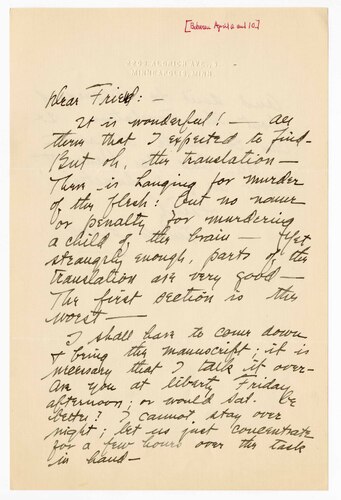 [Between April 2 and 10]
ALDRICH AVE. S
MINNEAPOLIS, MINN.
Dear Friend: —
It is wonderful! — all
there that I expected to find —
But oh, the translation —
There is hanging for murder
of the flesh: but no name
or penalty for murdering
a child of the brain — Yet
strangely enough, parts of the
translation are very good —
The first section is the
worst —
I shall have to come down
& bring the manuscript; it is
necessary that I talk it over —
Are you at liberty Friday
afternoon; or would Sat. be
better? I cannot stay over
night; let us just concentrate
for a few hours over the task
in hand —